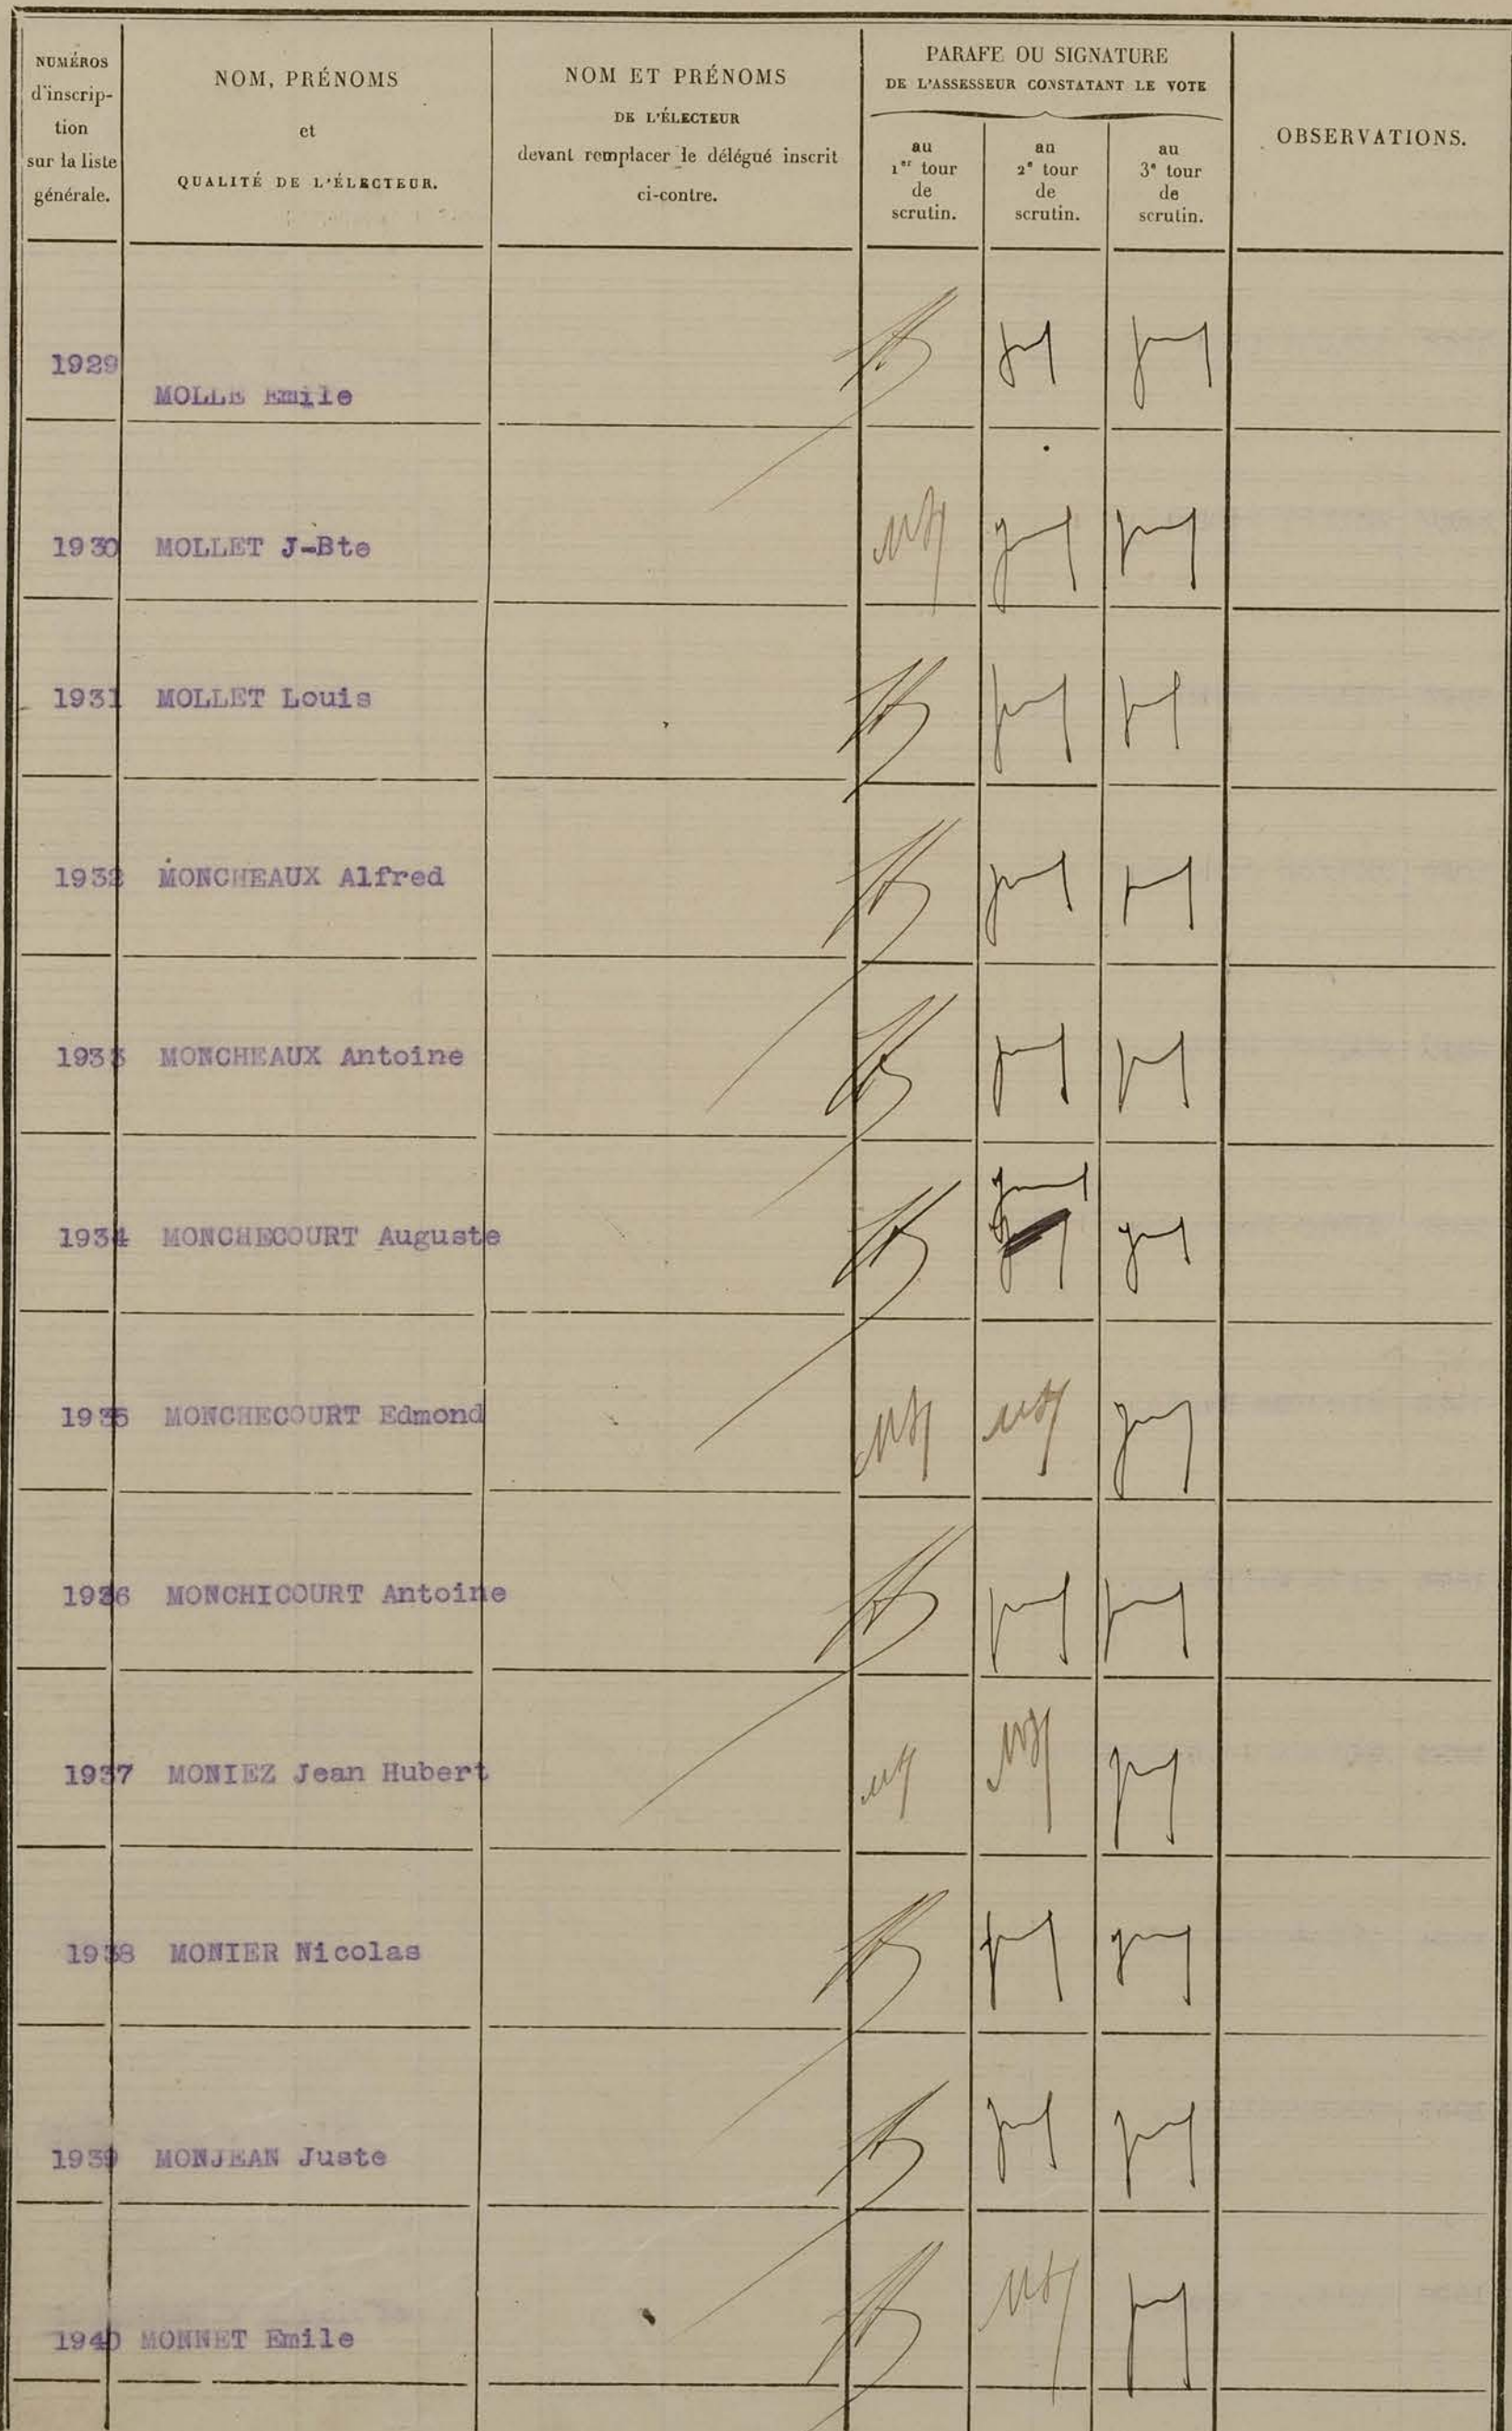 NUMÉROS
d'inscrip-
tion
sur la liste
générale.
NOM, PRÉNOMS
et
QUALITÉ DE L'ÉLECTEUR.
NOM ET PRÉNOMS
DE L'ÉLECTEUR
devant remplacer le délégué inscrit
ci-contre.
PARAFE OU SIGNATURE
DE L'ASSESSEUR CONSTATANT LE VOTE
au
1er tour
de
scrutin.
au
2e tour
de
scrutin.
au
3e tour
de
scrutin.
OBSERVATIONS.
1929 MOLLE Emile
1930 MOLLET J-Bte
1931 MOLLET Louis
1932 MONCHEAUX Alfred
1933 MONCHEAUX Antoine
1934 MONCHECOURT Auguste
1935 MONCHECOURT Edmond
1936 MONCHICOURT Antoine
1937 MONIEZ Jean Hubert
1938 MONIER Nicolas
1939 MONJEAN Juste
1940 MONNET Emile